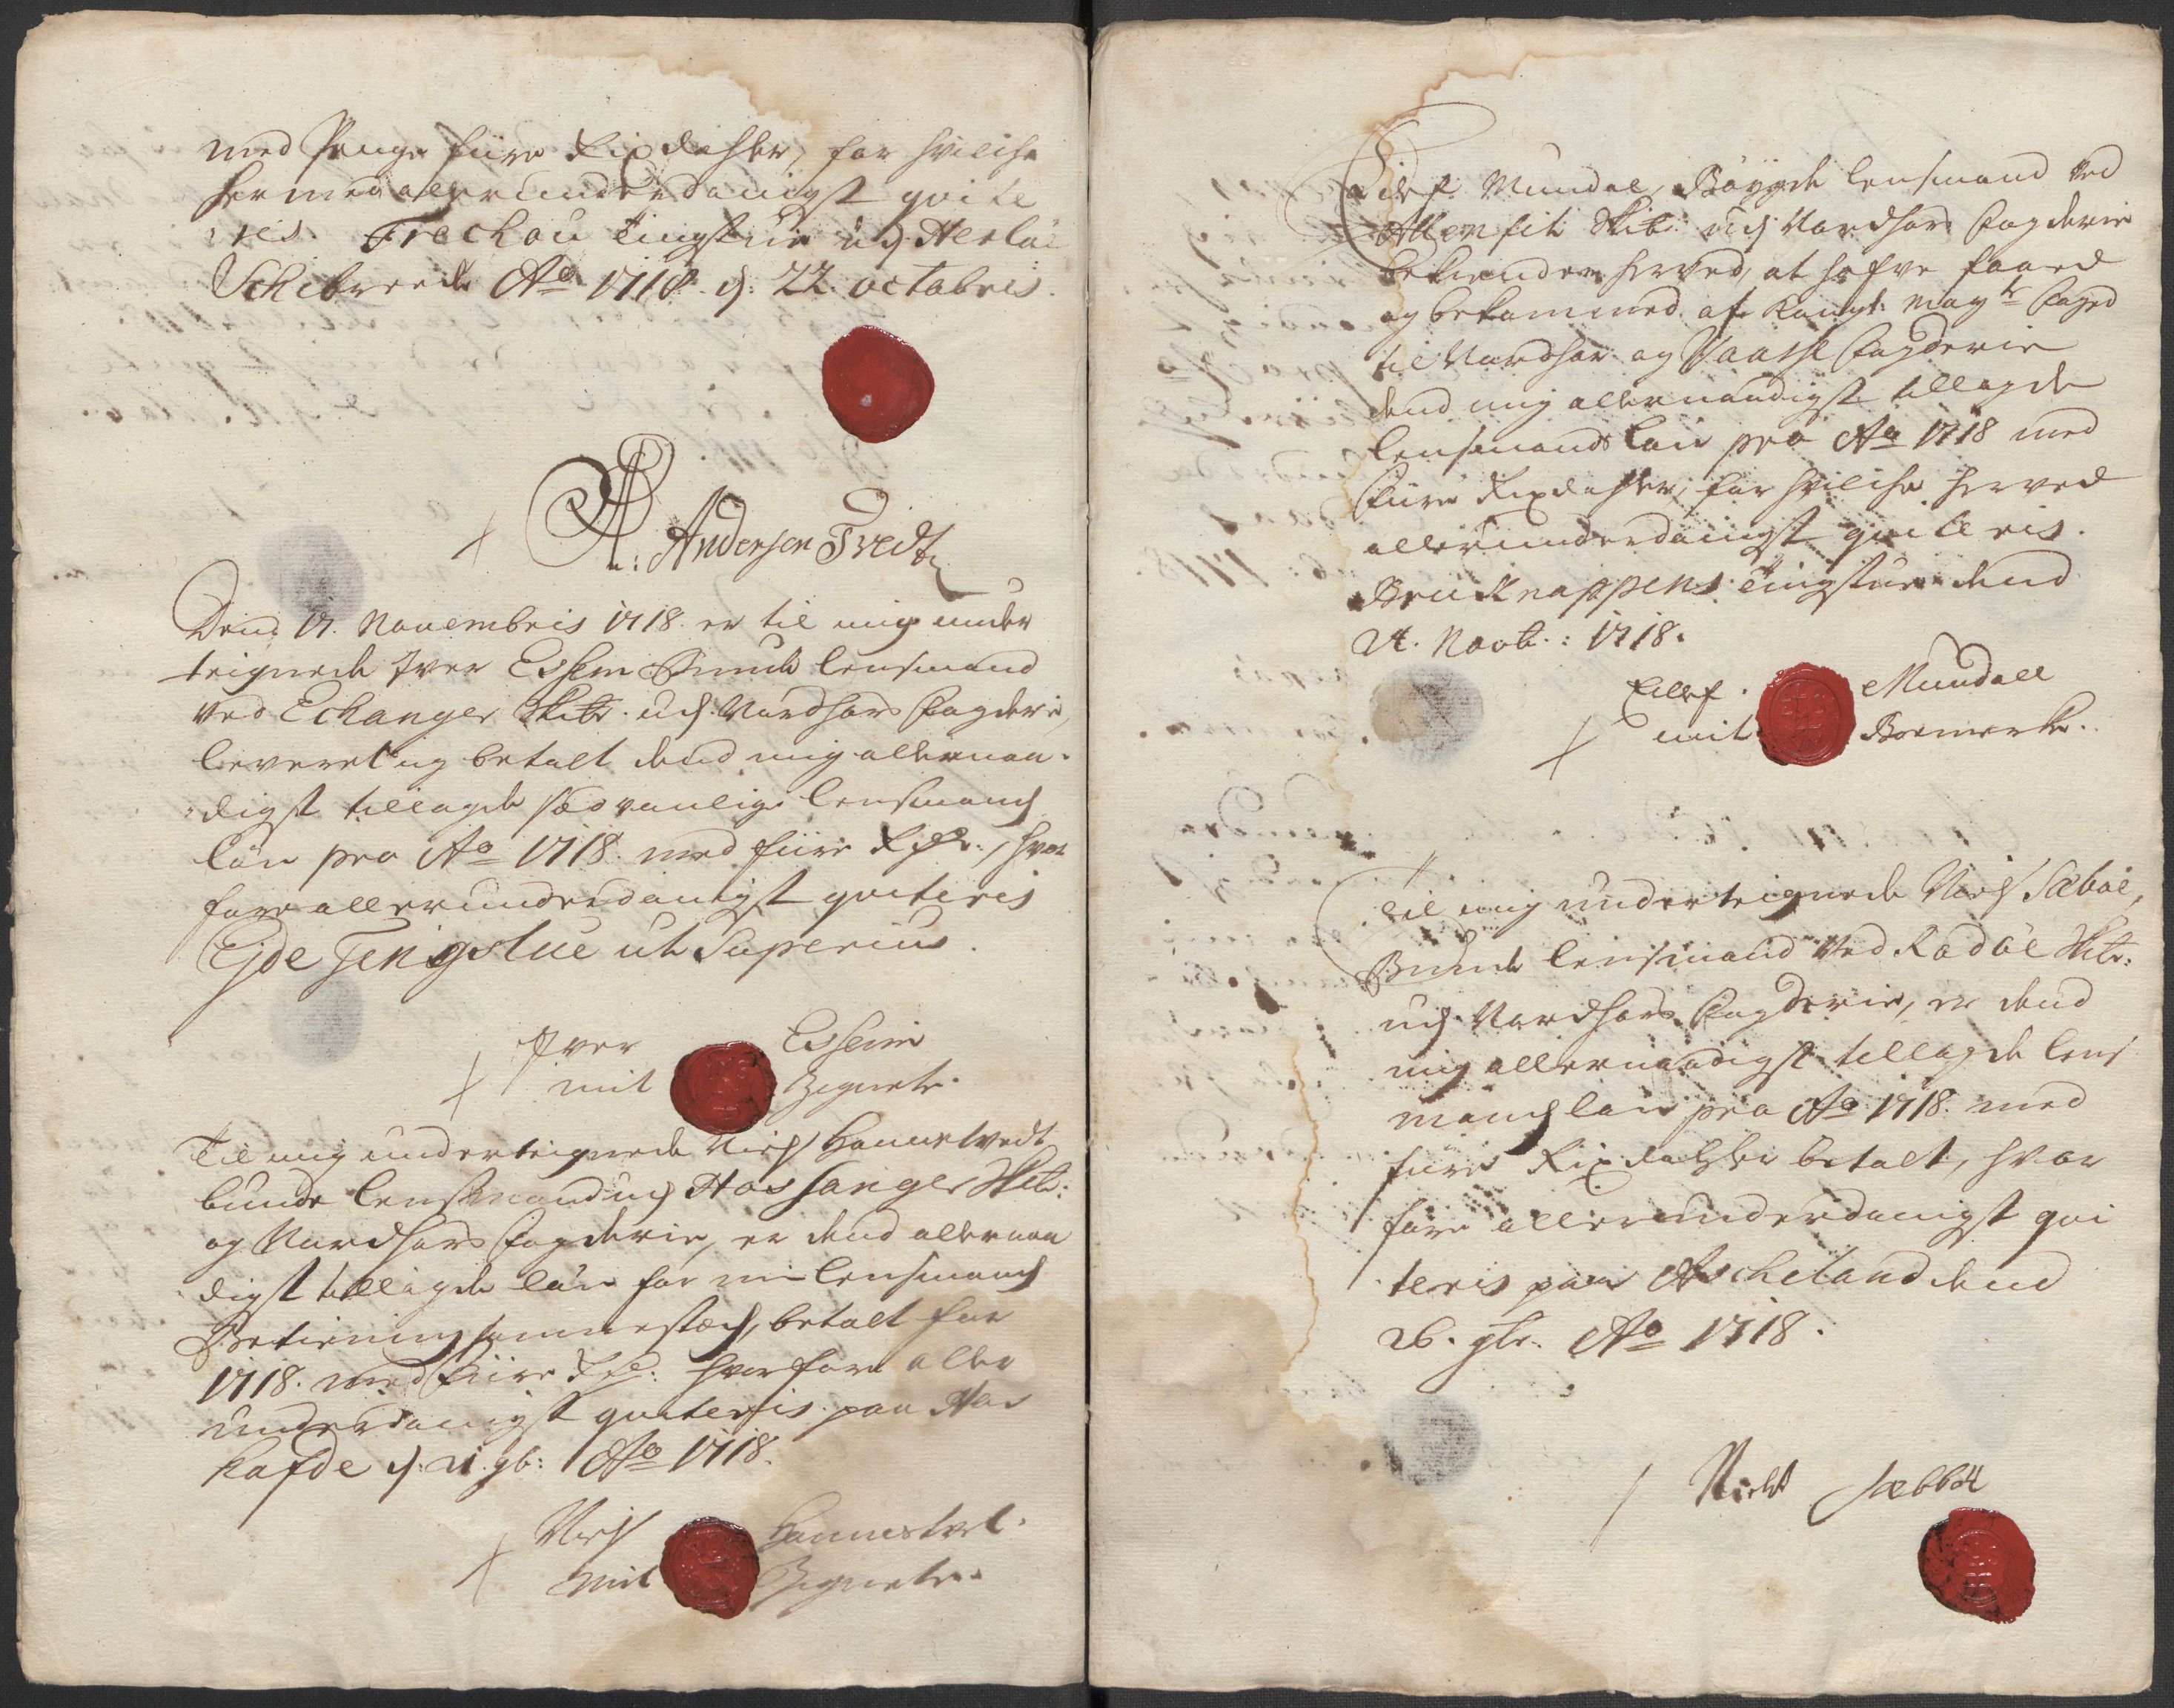 med Penge fiire Rixdahler, for hvilche
hermed allerunderdanigst qvite
res. Frechou Tingstue udj Herlöe
Schibrede Ao 1718. d: 22 octobris.
A: Andersen Tvedt
Dend 17. Novembris 1718. er til mig under
teignede Iver Eshem Bunde lensmand
ved Echanger Skibr. udj Nordhors Fogderie,
leveret og betalt dend mig allernaa-
digst tillagde sædvanlige lensmands
lön pro Ao 1718. med fiire Rdr., hvor
fore allerunderdanigst qviteris
Ejde Tingstue ut Superius.
Iver Esheim
mit Zignete.
Til mig underteignede Niels Hannestvedt
bunde lensmand udj Hossanger Skibr:
og Nordhors Fogderie, er dend allernaa
digst tillagde lön for min lensmands
Betiening sammestæds, betalt for
1718. med fiire Rdr. hvorfore aller
underdanigst qviteris. paa Hos
hofde d: 21. 9b: Ao 1718.
Niels Hannestvet.
mit Zignete.
Eilef Mundal, Böygde lensmand ved
Allenfit Skibr: udj Nordhors Fogderie
bekiender herved, at hafve faaed
og bekommed af Kongl: Mayts Foged
til Nordhor og Vaasse Fogderie
dend mig allernaadigst tillagde
lensmands lön pro Ao 1718 med
fiire Rixdahler, for hvilche herved
allerunderdanigst qviteris.
Bruchnappens Tingstue dend
24. Novbr: 1718.
Eillef Mundall
mit Boemerke.
Til mig underteignede Niels Sæböe,
Bunde lensmand ved Radöe Skibr:
udj Nordhors Fogderie, er dend
mig allernaadigst tillagde lens
mands lön pro Ao 1718. med
fiire Rixdahler betalt, hvor
fore allerunderdanigst qvi
teris paa Ascheland dend
26. 9br. Ao 1718.
Niels Sæbböe